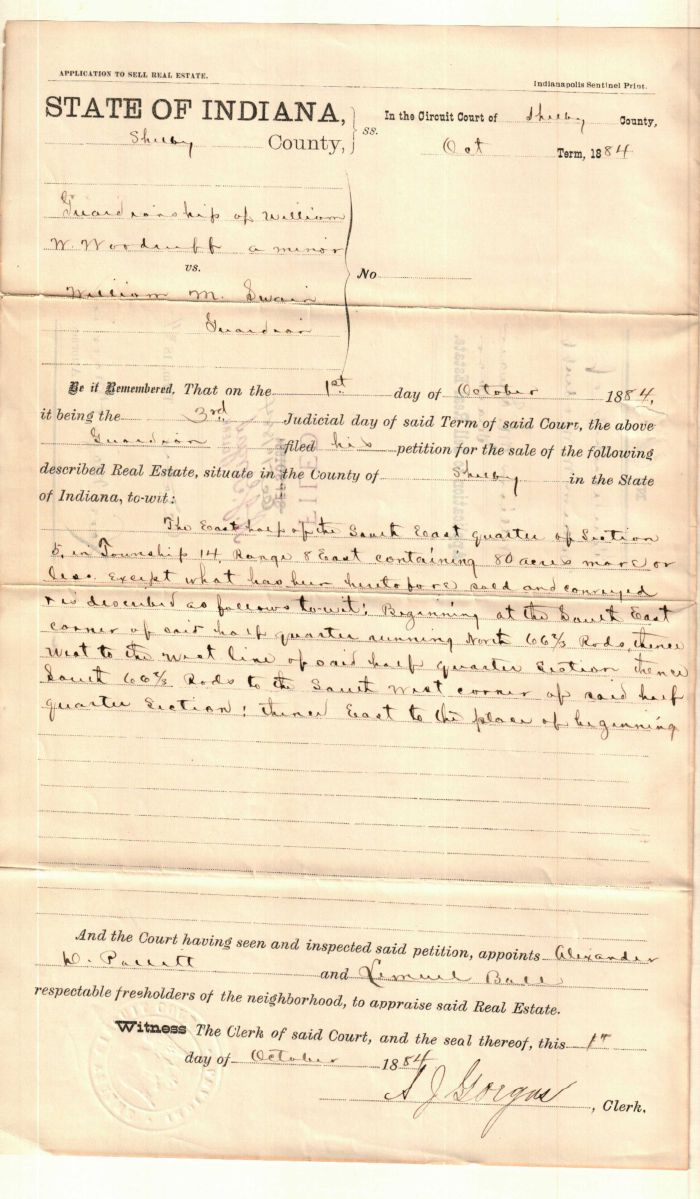 APPLICATION TO SELL REAL ESTATE.
Indianapolis Sentinel Print.
STATE OF INDIANA,
Shelby County,
ss.
In the Circuit Court of Shelby County,
Oct Term, 1884
Guardianship of William
W. Woodruff a minor
vs.
William M. Swain
Guardian
No
Be it Remembered, That on the 1st day of October 1884,
it being the 3rd Judicial day of said Term of said Court, the above
Guardian filed his petition for the sale of the following
described Real Estate, situate in the County of Shelby in the State
of Indiana, to-wit:
The East half of the South East quarter of Section
5, in Township 14, Range 8 East containing 80 acres more or
less. Except what has been heretofore sold and conveyed
& is described as follows to-wit: Beginning at the South East
corner of said half quarter running North 66 2/3 Rods, thence
West to the West line of said half quarter Section thence
South 66 2/3 Rods to the South West corner of said half
quarter Section; thence East to the place of beginning
And the Court having seen and inspected said petition, appoints Alexander
and Lemuel Ball
respectable freeholders of the neighborhood, to appraise said Real Estate.
Witness The Clerk of said Court, and the seal thereof, this 1st
day of October 1884
S J Gorgas, Clerk.
FILED